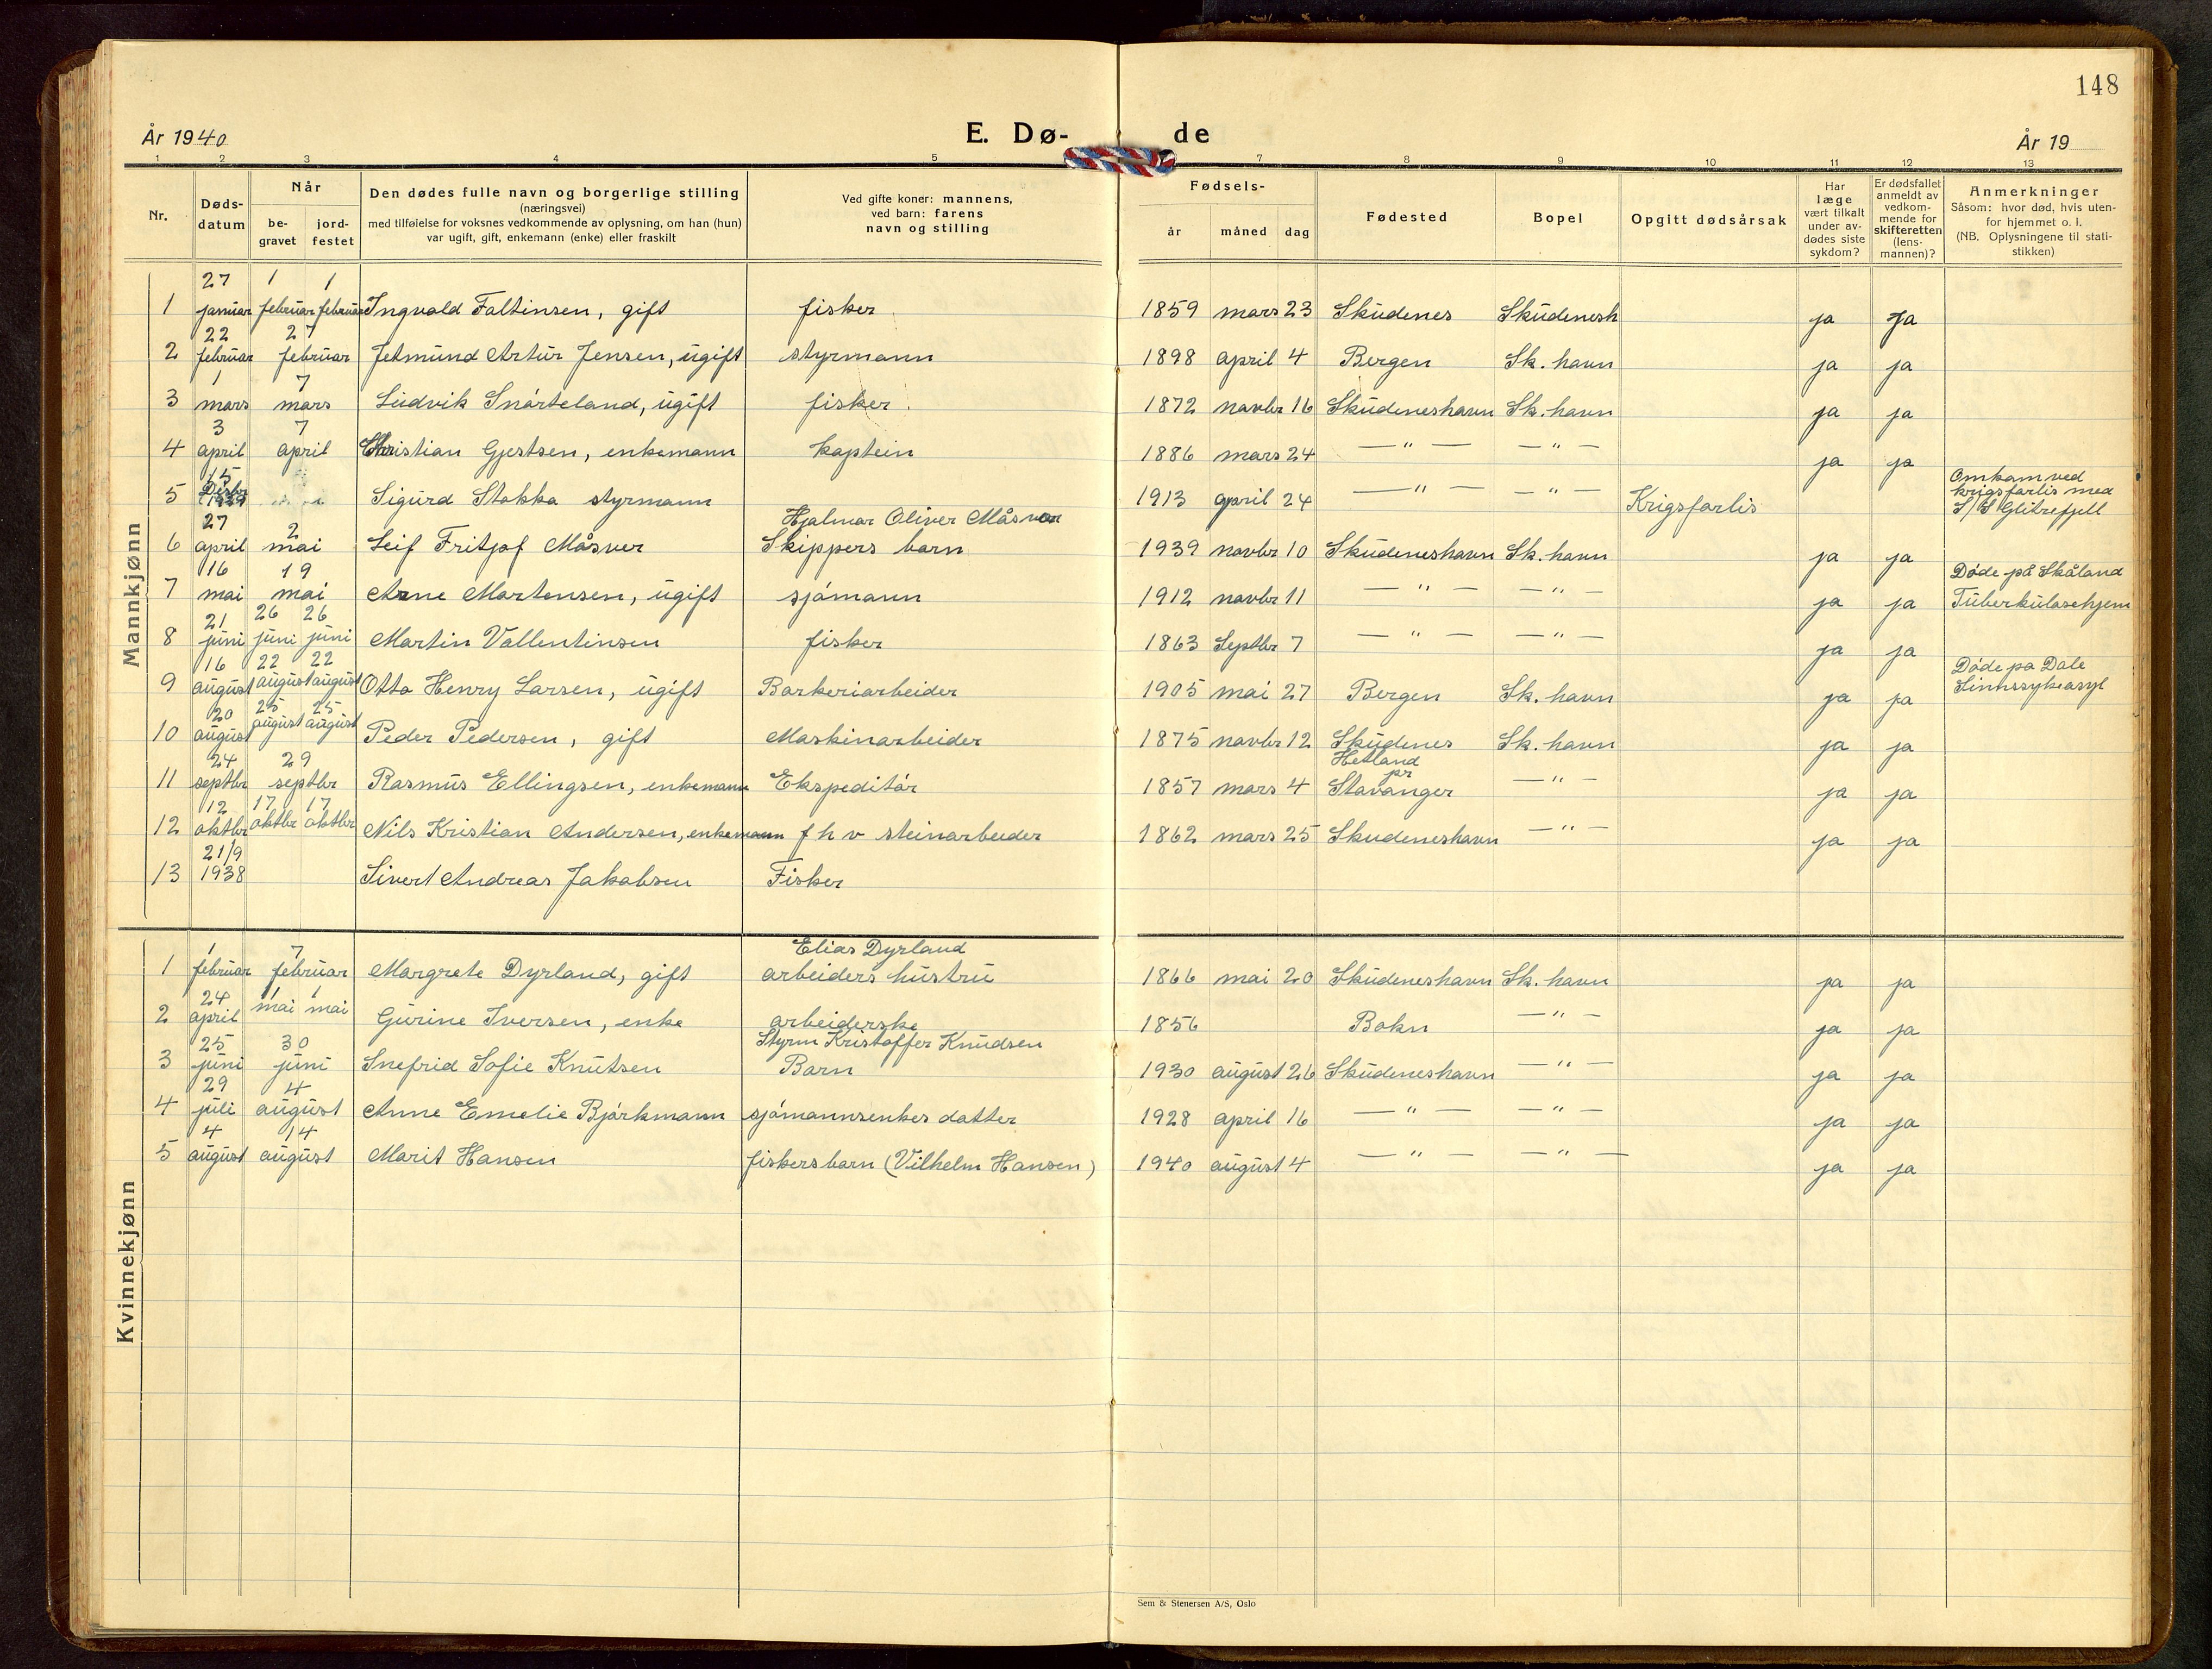 148
År 1940 E. Dø- de År 19
1 2 3 4 5 7 8 9 10 11 12 13
Nr. Døds-datum Når be-gravet jord-festet Den dødes fulle navn og borgerlige stilling (næringsvei) med tilføielse for voksnes vedkommende av oplysning, om han (hun) var ugift, gift, enkemann (enke) eller fraskilt Ved gifte koner: mannens, ved barn: farens navn og stilling Fødsels- år måned dag Fødested Bopel Opgitt dødsårsak Har læge vært tilkalt under av-dødes siste sykdom? Er dødsfallet anmeldt av vedkom-mende for skifteretten (lens-mannen)? Anmerkninger Såsom: hvor død, hvis uten-for hjemmet o. l. (NB. Oplysningene til stati-stikken)
Mannkjønn
1 27 januar 1 februar 1 februar Ingvald Faltinsen, gift fisker 1859 mars 23 Skudenes Skudenesh ja Ja
2 22 februar 27 februar Jetmund Artur Jensen, ugift styrmann 1898 april 4 Bergen Sk. havn ja ja
3 1 mars 7 mars Ludvik Snørteland, ugift fisker 1872 novbr 16 Skudeneshavn Sk. havn ja ja
4 3 april 7 april Christian Gjertsen, enkemann kaptein 1886 mars 24 — " — — " — ja ja
5 15 Desbr 1939 Sigurd Stokka styrmann 1913 april 24 — " — — " — Krigsforlis Omkom ved krigsforlis med S/S Glitrefjell
6 27 april 2 mai Leif Fritjof Måsver Hjalmar Oliver Måsver Skippers barn 1939 novbr 10 Skudeneshavn Sk. havn ja ja
7 16 mai 19 mai Arne Martensen, ugift sjømann 1912 novbr 11 — " — — " — ja ja Døde på Skåland Tuberkulosehjem
8 21 juni 26 juni 26 juni Martin Vallentinsen fisker 1863 Septbr 7 — " — — " — ja ja
9 16 august 22 august 22 august Otto Henry Larsen, ugift Barkeriarbeider 1905 mai 27 Bergen Sk. havn ja ja Døde på Dale Sinnssykeasyl
10 20 august 25 august 25 august Peder Pedersen, gift Maskinarbeider 1875 novbr 12 Skudenes Sk. havn ja ja
11 24 septbr 29 septbr Rasmus Ellingsen, enkemann Ekspeditør 1857 mars 4 Hetland pr Stavanger — " — ja ja
12 12 oktbr 17 oktbr 17 oktbr Nils Kristian Andersen, enkemann f h v steinarbeider 1862 mars 25 Skudeneshavn — " — ja ja
13 21/9 1938 Sivert Andreas Jakobsen Fisker
Kvinnekjønn
1 1 februar 7 februar Margrete Dyrland, gift Elias Dyrland arbeiders hustru 1866 mai 20 Skudeneshavn Sk. havn ja ja
2 24 april 1 mai 1 mai Gurine Iversen, enke arbeiderske 1856 Bokn — " — ja ja
3 25 juni 30 juni Snefrid Sofie Knutsen Styrm Kristoffer Knudsen Barn 1930 august 26 Skudeneshavn — " — ja ja
4 29 juli 4 august Anne Emelie Bjørkmann sjømannsenkes datter 1928 april 16 — " — — " — ja ja
5 4 august 14 august Marit Hansen fiskers barn (Vilhelm Hansen) 1940 august 4 — " — — " — ja ja
Sem & Stenersen A/S, Oslo